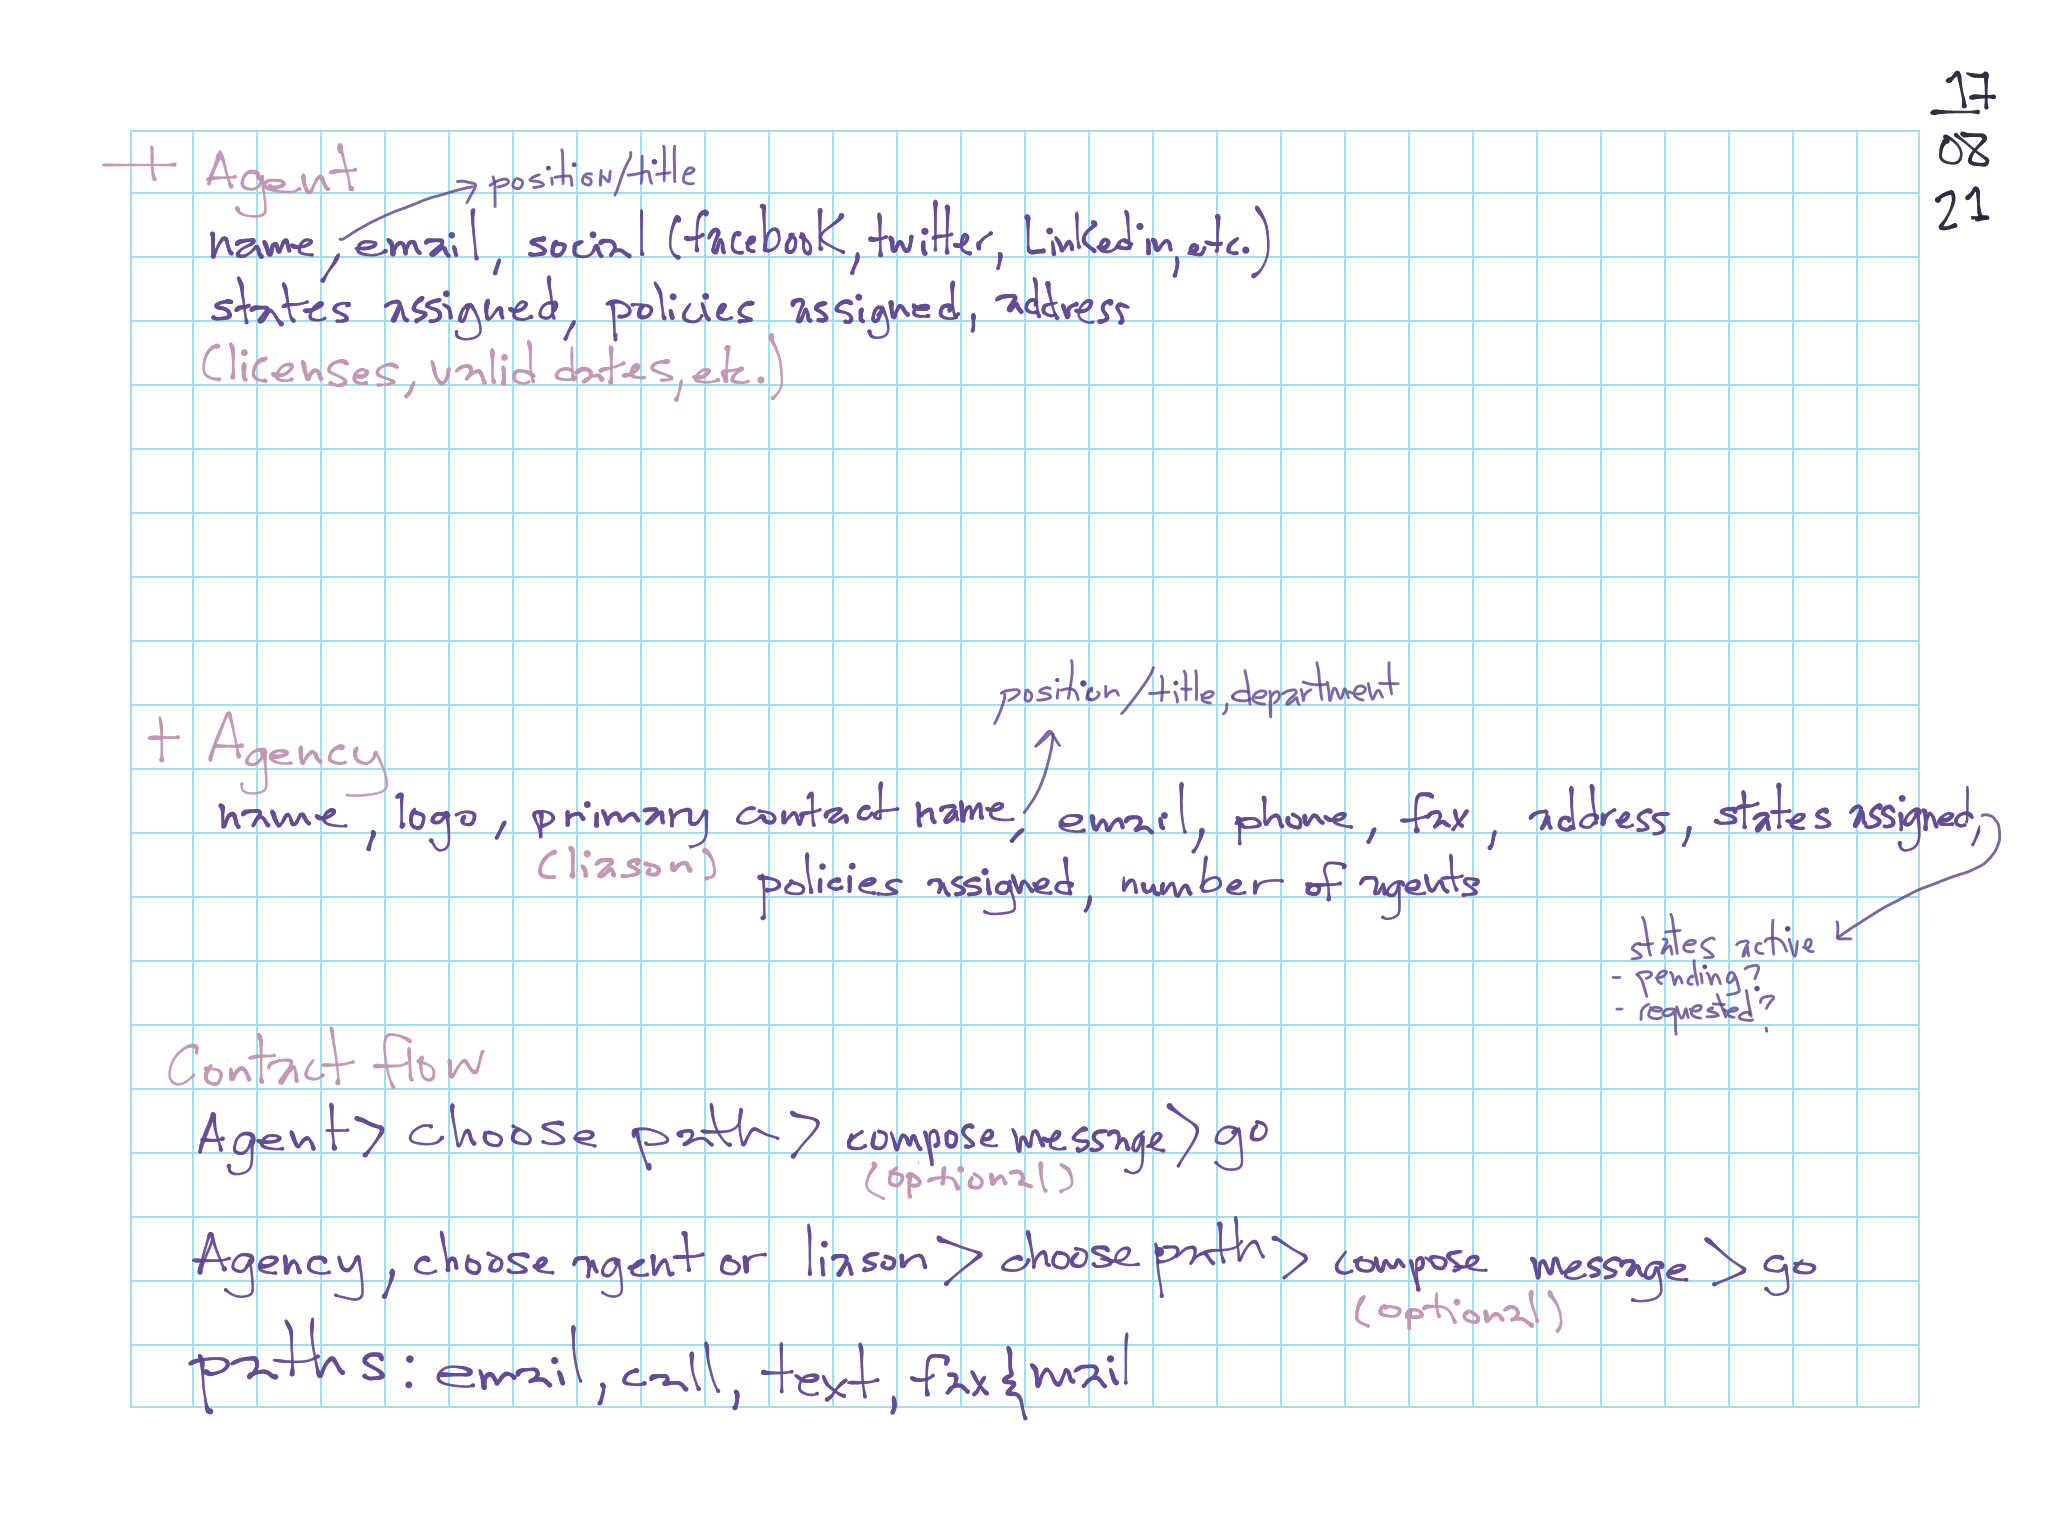 17
08
21
+ Agent
position/title
name, email, social (facebook, twitter, Linkedin, etc.)
states assigned, policies assigned, address
(licenses, valid dates, etc.)
position/title, department
+ Agency
name, logo, primary contact name, email, phone, fax, address, states assigned,
(liason)
policies assigned, number of agents
states active
- pending?
- requested?
Contact flow
Agent > choose path > compose message > go
(optional)
Agency, choose agent or liason > choose path > compose message > go
(optional)
paths: email, call, text, fax & mail